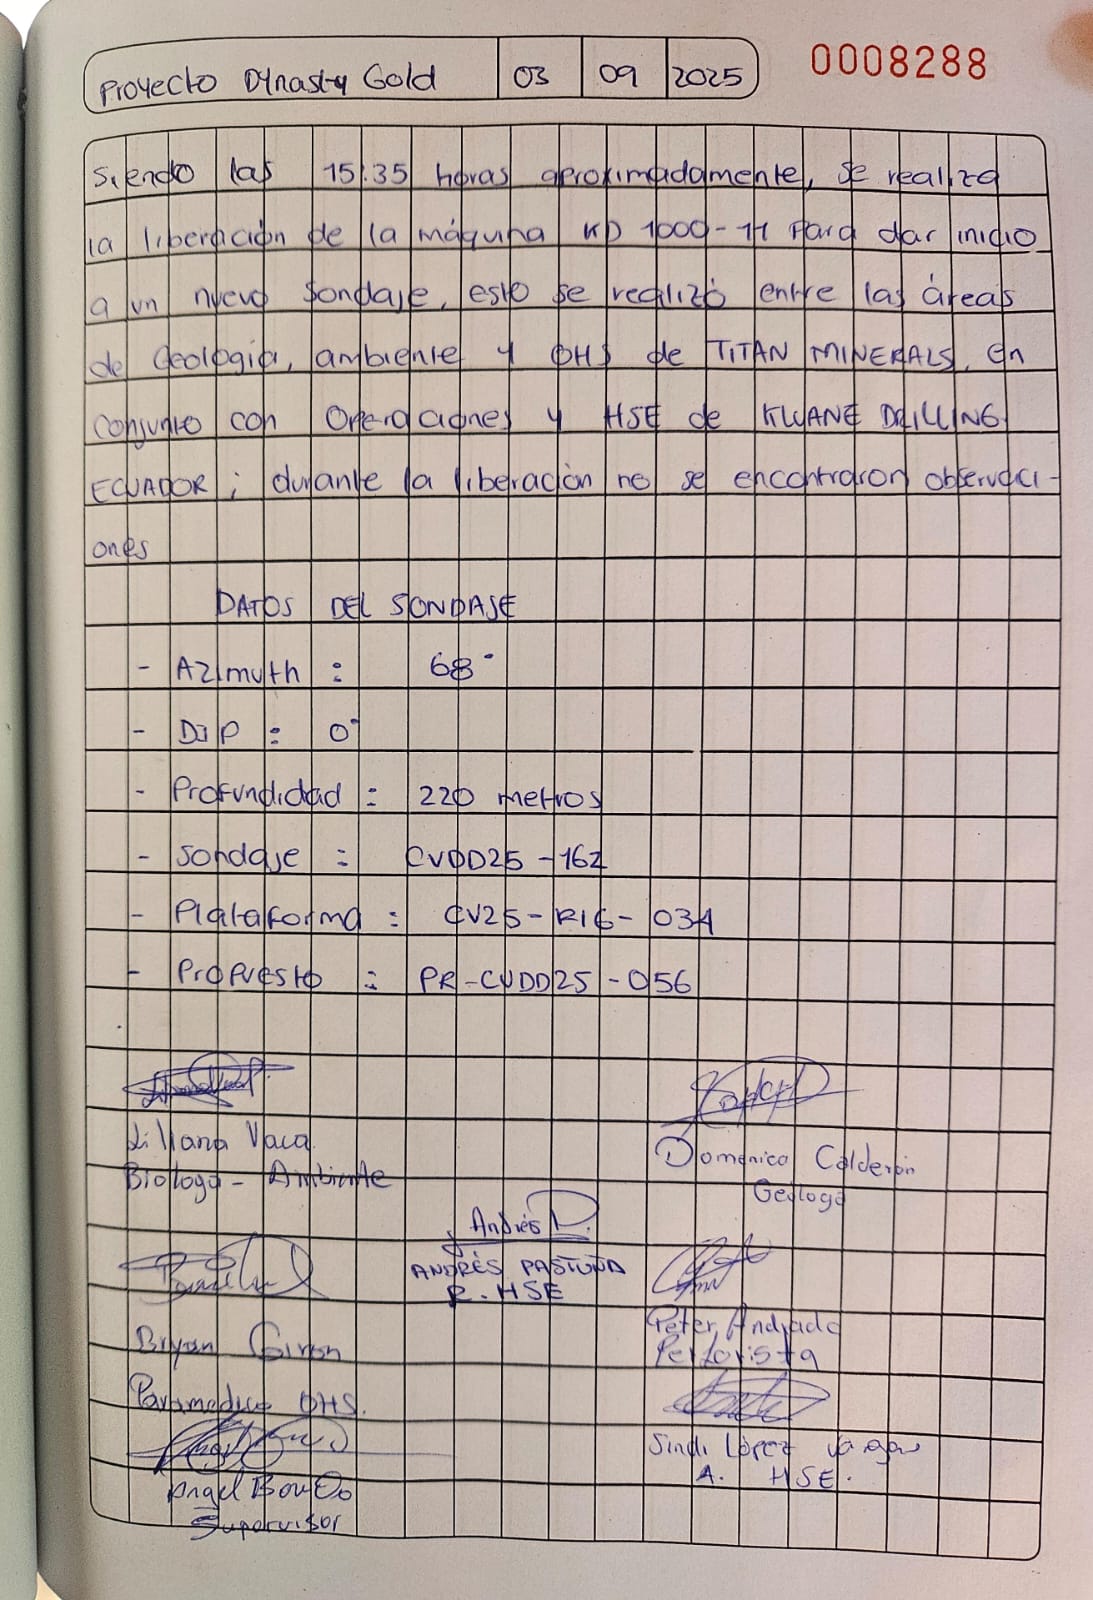 Proyecto Dynasty Gold 03 09 2025 0008288
Siendo las 15:35 horas aproximadamente, se realiza
la liberación de la máquina KD 1000-11 Para dar inicio
a un nuevo sondaje, esto se realizó entre las áreas
de Geología, ambiente y OHS de TITAN MINERALS, en
conjunto con Operaciones y HSE de KLUANE DRILLING
ECUADOR; durante la liberación no se encontraron observaci-
ones
DATOS DEL SONDAJE
- Azimuth : 68°
- DIP : 0°
- Profundidad : 220 metros
- Sondaje : CVDD25-162
- Plataforma : CV25-RIG-034
- Propuesto : PR-CVDD25-056
Liliana Vaca
Biologa - Ambiente
Domenica Calderón
Geóloga
Andrés P.
ANDRÉS PASTUÑA
R. HSE
Bryan Giron
Paramedico OHS.
Peter Andrade
Perforista
Sindi López Vargas
A. HSE.
Angel
Supervisor